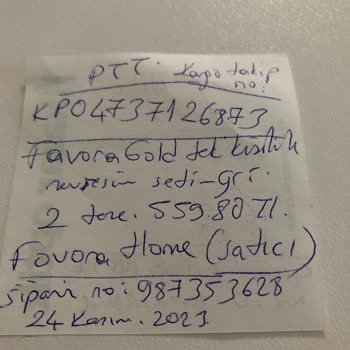 PTT. Kargo takip
no:
KP04737126873
Favora Gold tek kişilik
nevresim seti-gri.
2 tane. 559.80 Tl.
Favora Home (satıcı)
Sipariş no: 987353628
24 Kasım. 2023